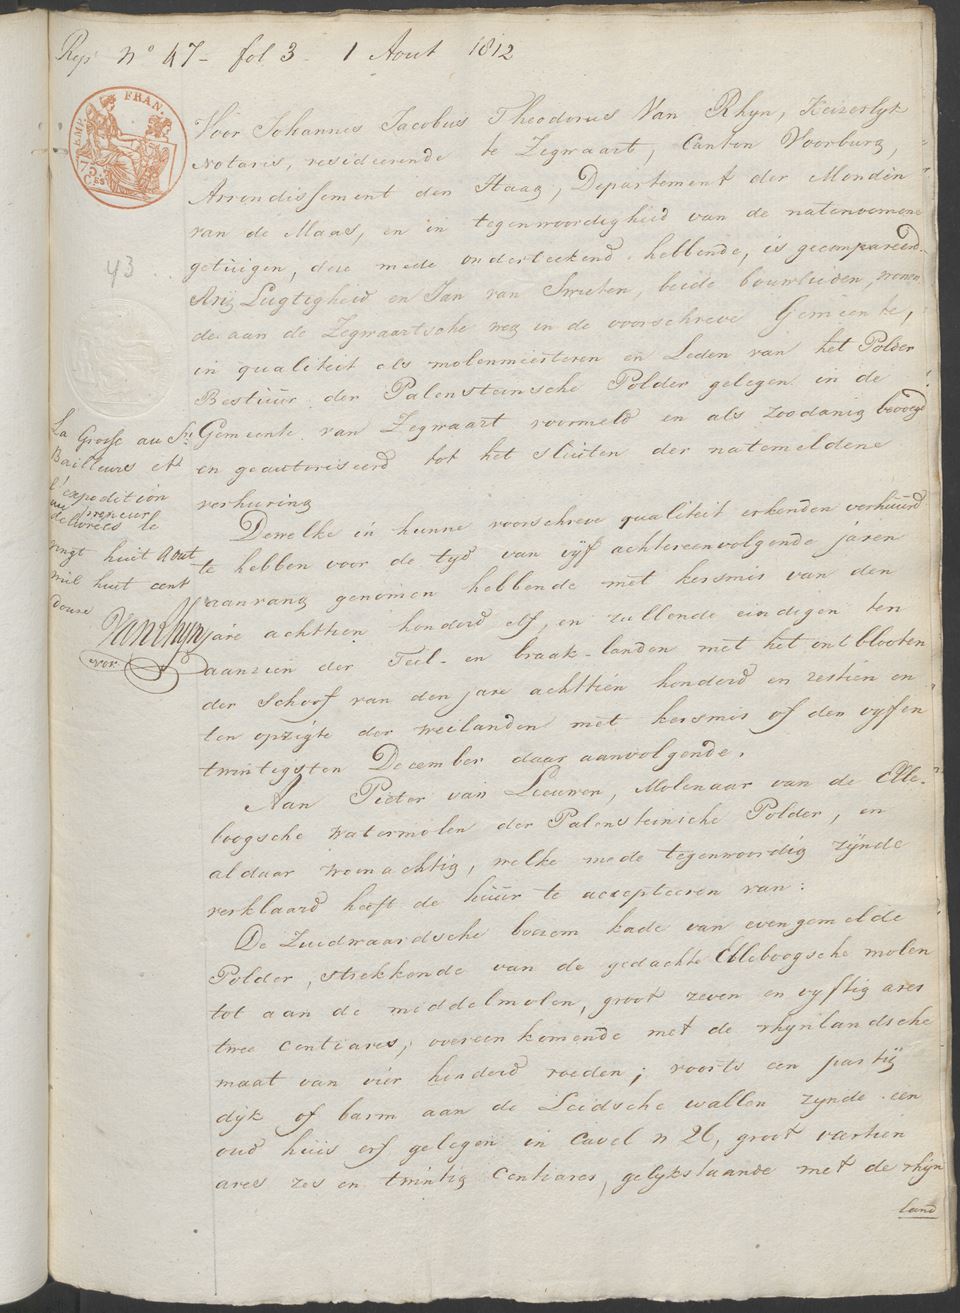 Rep. n° 47 - fol 3. 1 Aout 1812
EMP. FRAN.
75 Ces
43
Voor Johannes Jacobus Theodorus Van Rhyn, Keizerlyk
Notaris, resideerende te Zegwaart, Canton Voorburg,
Arrondissement den Haag, Departement der Monden
van de Maas, en in tegenwoordigheid van de natenoemene
getuigen, dese mede onderteekend hebbende, is gecompareerd.
Arij Lugtigheid en Jan van Swieten, beide bouwlieden, wonen
de aan de Zegwaartsche weg in de voorschreve Gemeente,
in qualiteit als molenmeesteren en Leden van het Polder
Bestuur der Palensteinsche Polder gelegen in de
Gemeente van Zegwaart voormeld en als zoodanig bevoegd
en geautoriseerd tot het sluiten der natemeldene
verhuring
Dewelke in hunne voorschreve qualiteit erkenden verhuurd
te hebben voor de tyd van vyf achtereenvolgende jaren
aanvang genomen hebbende met kersmis van den
jare achttien honderd elf, en zullende eindigen ten
aanzien der Teel- en braak-landen met het ontblooten
der Schoof van den jare achttien honderd en zestien en
ten opzigte der weilanden met kersmis of den vyfen
twintigsten December daar aanvolgende.
Aan Pieter van Leeuwen, Molenaar van de Elle-
boogsche watermolen der Palensteinsche Polder, en
aldaar woonachtig, welke mede tegenwoordig zynde
verklaard heeft de huur te accepteeren van:
De Zuidwaardsche boezem kade van evengemelde
Polder, strekkende van de gedachte Elleboogsche molen
tot aan de middelmolen, groot zeven en vyftig ares
twee centiares, overeenkomende met de rhynlandsche
maat van vier honderd roeden; voorts een partij
dyk of barm aan de Leidsche wallen zynde een
oud huis erf gelegen in Cavel n 26, groot vartien
ares zes en twintig Centiares, gelykstaande met de rhyn
land
La Grosse au Sn.
Bailleurs et
l'expedition
au preneur
delivrées le
vingt huit Aout
mil huit cent
douze
Van Rhyn
not